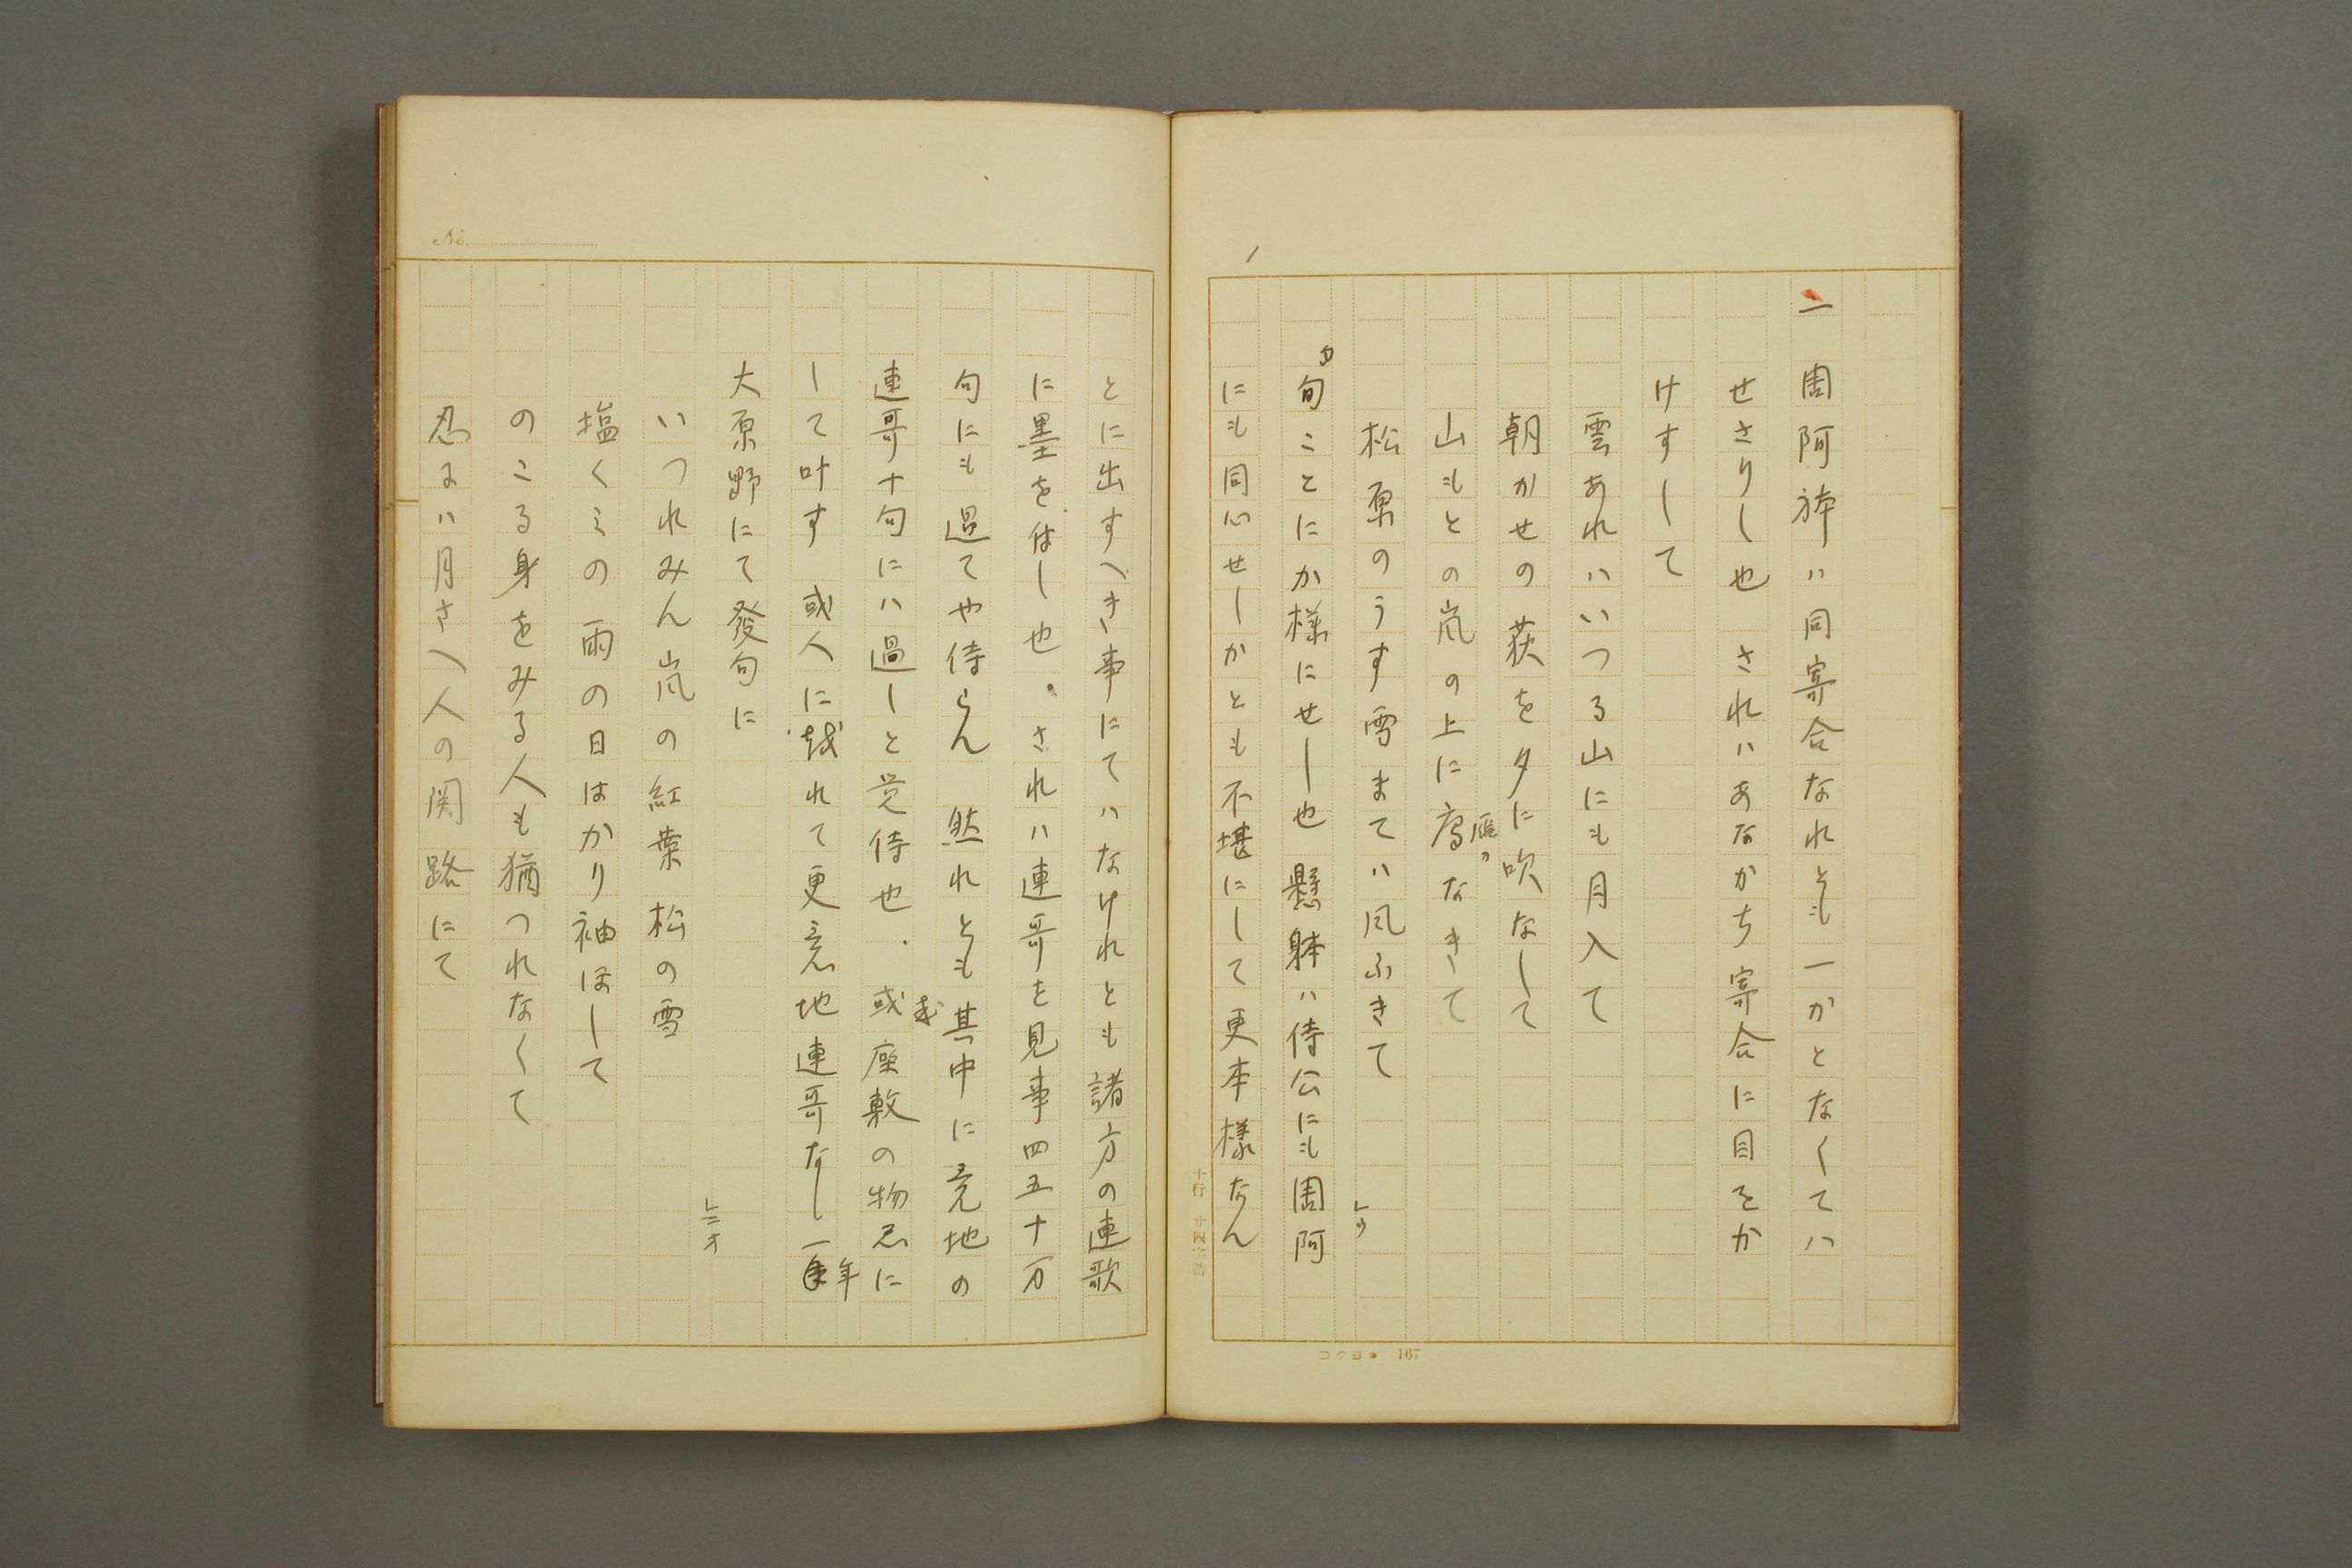 一 周阿躰ハ同寄合なれとも一かとなくてハ
せさりし也 されハあなかち寄合に目をか
けすして
雲あれハいつる山にも月入て
朝かせの荻を夕に吹なして
山もとの嵐の上に鴈なきて
雁カ
松原のうす雪まてハ風ふきて
」ウ
旬ことにか様にせし也 懸躰ハ侍公にも周阿
にも同心せしかとも不堪にして更本様なん
コクヨ 167
十行 廿四字詰
とに出すへき事にてハなけれとも諸方の連歌
に墨をはし也 されハ連哥を見事四五十万
句にも過てや侍らん 然れとも其中に意地の
連哥十句にハ過しと覚侍也 或座敷の物忌に
して叶す 或人に越れて更意地連哥なし 一年
大原野にて發句に
」ニオ
いつれみん嵐の紅葉松の雪
塩くミの雨の日はかり袖ほして
のこる身をみる人も猶つれなくて
忍ふハ月さへ人の関路にて
No.